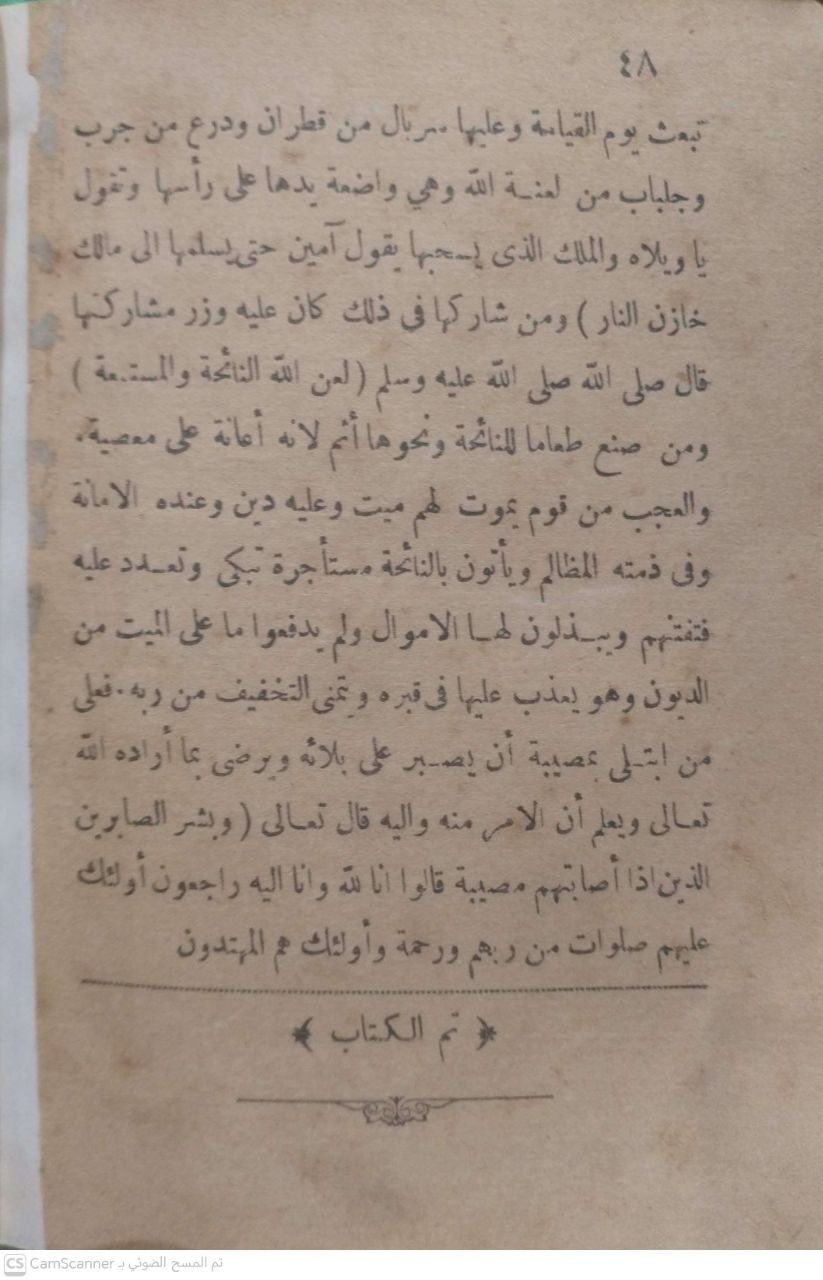 ٤٨
تبعث يوم القيامة وعليها سربال من قطران ودرع من جرب
وجلباب من لعنة الله وهي واضعة يدها على رأسها وتقول
يا ويلاه والملك الذى يسحبها يقول آمين حتى يسلمها الى مالك
خازن النار ) ومن شاركها فى ذلك كان عليه وزر مشاركتها
قال صلى الله صلى الله عليه وسلم ( لعن الله النائحة والمستمعة )
ومن صنع طعاما للنائحة ونحوها أثم لانه أعانة على معصية.
والعجب من قوم يموت لهم ميت وعليه دين وعنده الامانة
وفى ذمته المظالم ويأتون بالنائحة مستأجرة تبكى وتعدد عليه
فتفتنهم ويبذلون لها الاموال ولم يدفعوا ما على الميت من
الديون وهو يعذب عليها فى قبره ويتمنى التخفيف من ربه. فعلى
من ابتلى بمصيبة أن يصبر على بلائه ويرضى بما أراده الله
تعالى ويعلم أن الامر منه واليه قال تعالى ( وبشر الصابرين
الذين اذا أصابتهم مصيبة قالوا انا لله وانا اليه راجعون أولئك
عليهم صلوات من ربهم ورحمة وأولئك هم المهتدون
﴿ تم الكتاب ﴾
CS CamScanner تم المسح الضوئي بـ